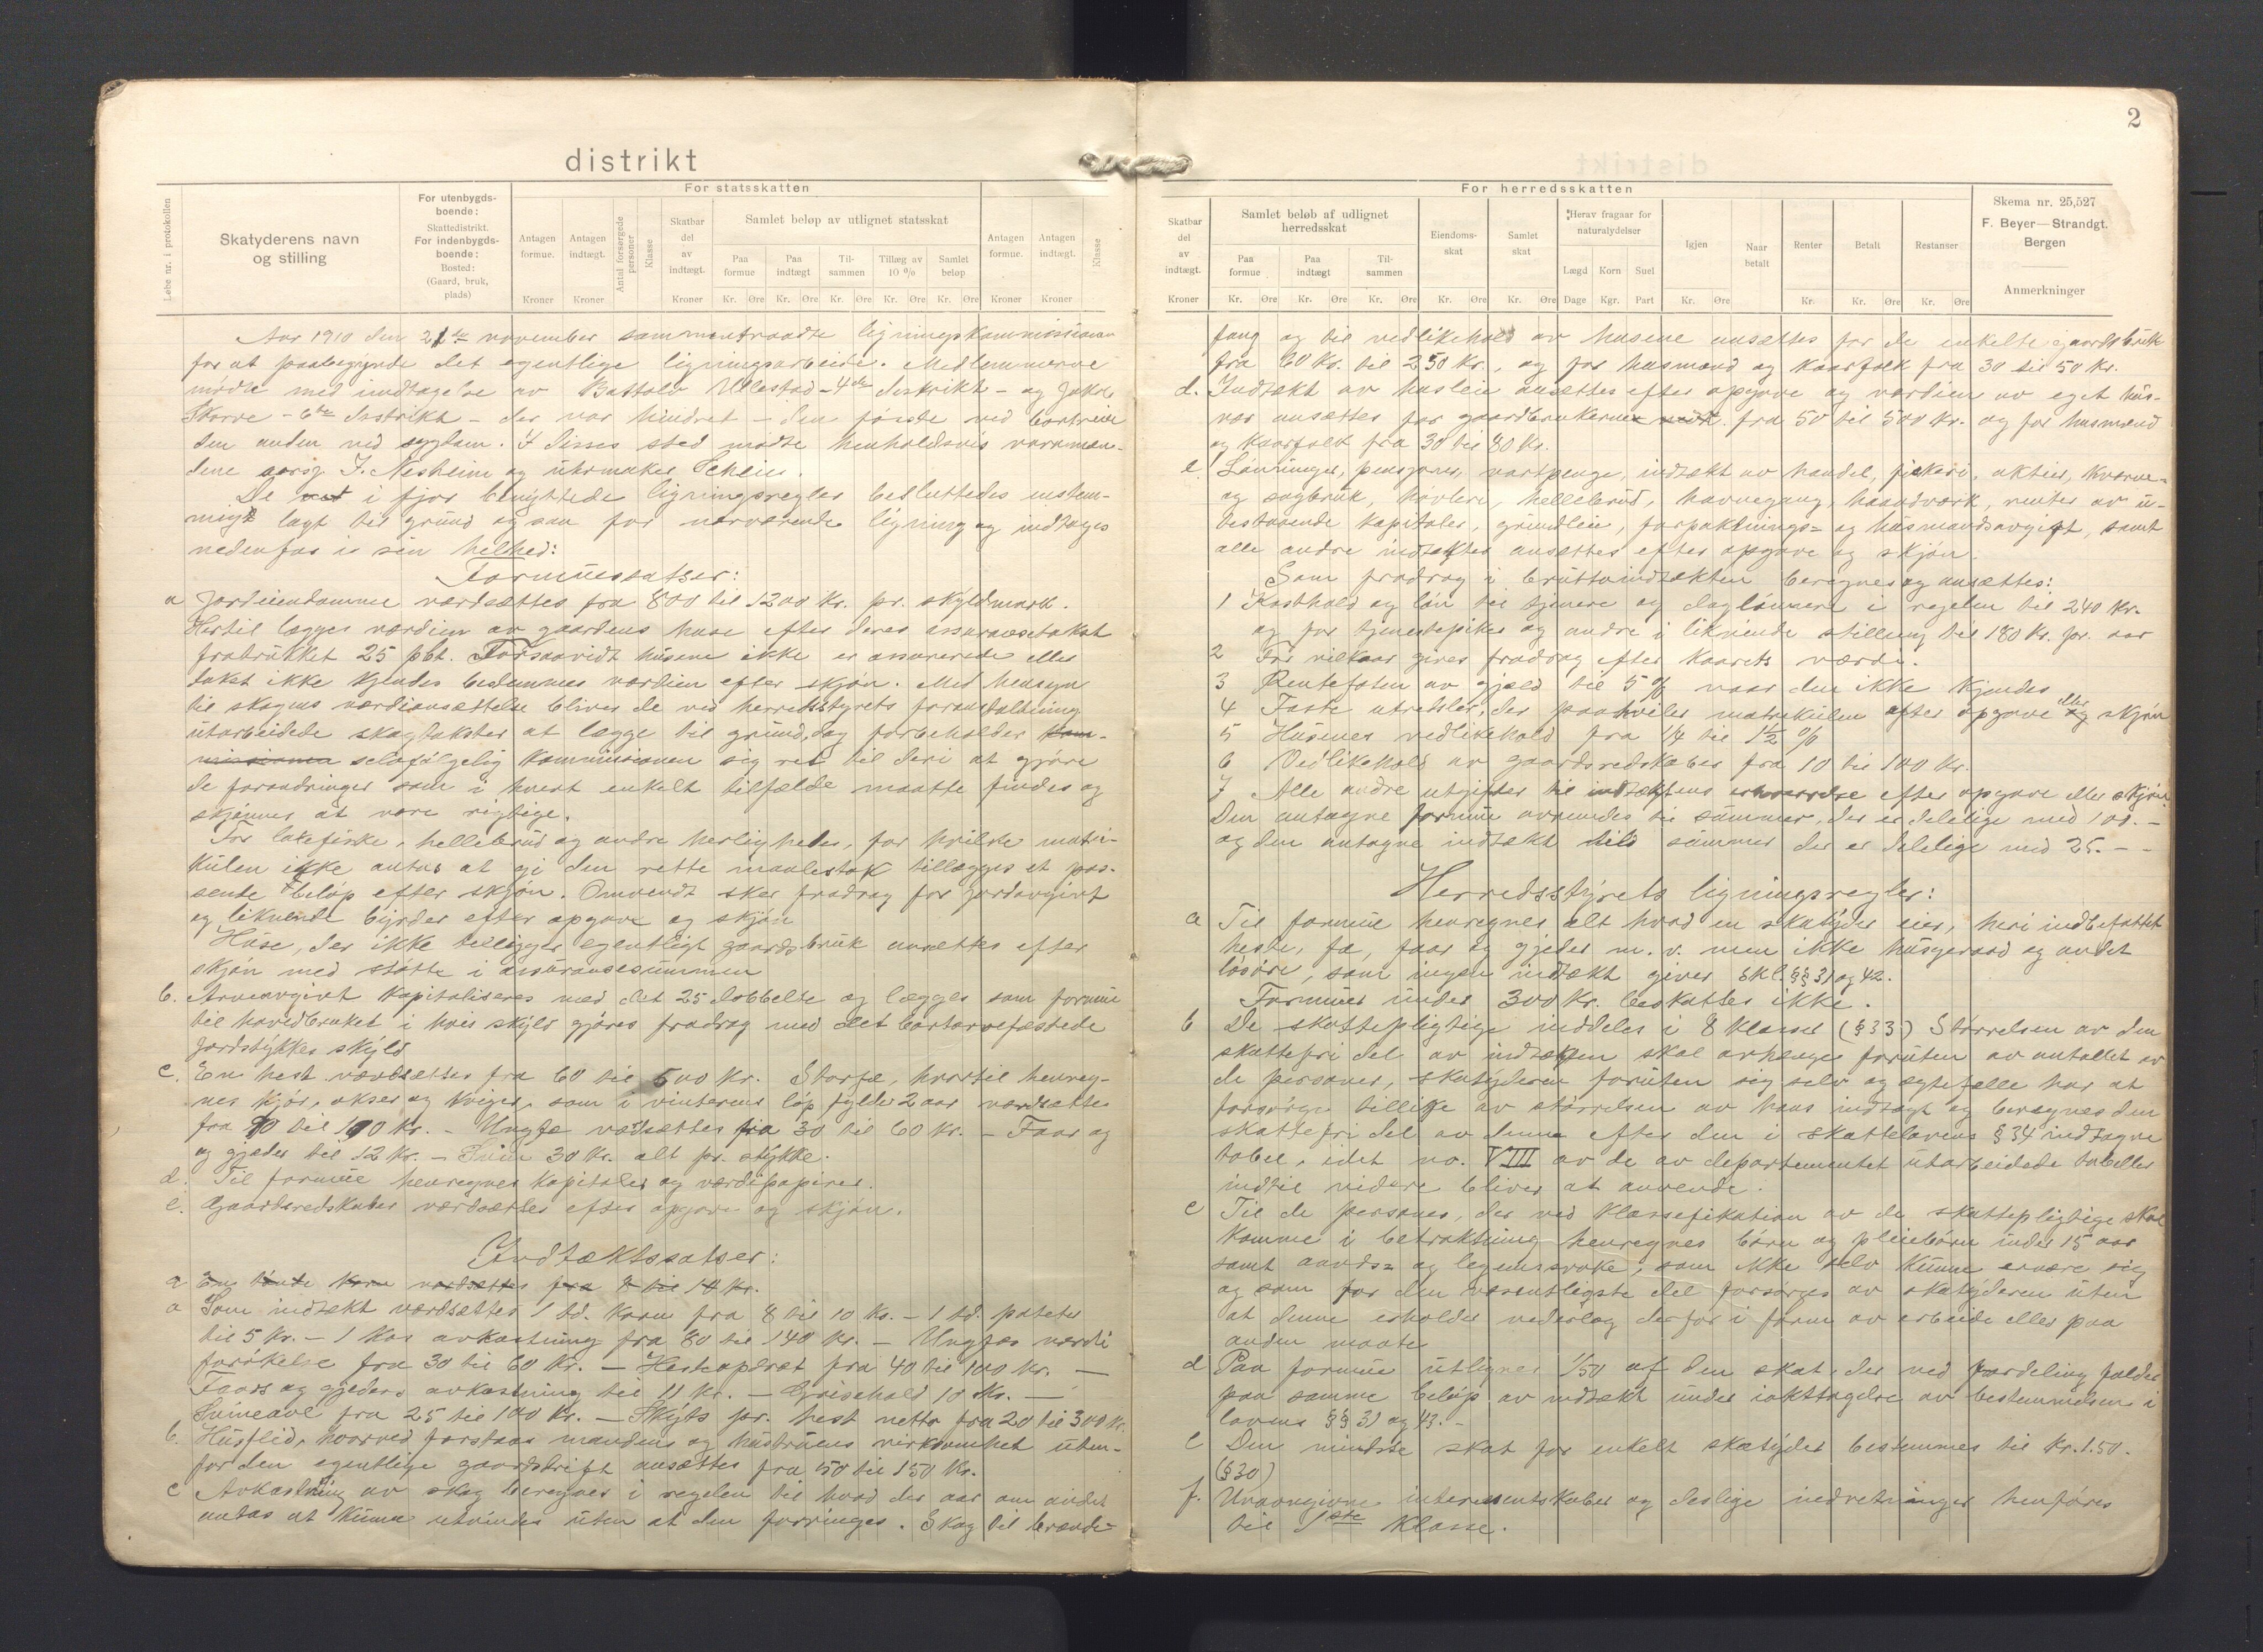 distrikt
Løbe nr. i protokollen
Skatyderens navn
og stilling
For utenbygds-
boende:
Skattedistrikt.
For indenbygds-
boende:
Bosted:
(Gaard, bruk,
plads)
For statsskatten
Antagen
formue.
Kroner
Antagen
indtægt.
Kroner
Antal forsørgede
personer
Klasse
Skatbar
del
av
indtægt.
Kroner
Samlet beløp av utlignet statsskat
Paa
formue
Paa
indtægt
Til-
sammen
Tillæg av
10 %
Samlet
beløp
Kr. Øre Kr. Øre Kr. Øre Kr. Øre Kr. Øre
Antagen
formue.
Kroner
Antagen
indtægt.
Kroner
Klasse
Aar 1910 den 21de november sammentraadte ligningskommissionen
for at paabegynde det egentlige ligningsarbeide. Medlemmerne
mødte med undtagelse av Battolv Ullestad - 4de distrikt - og Jakob
Skorve - 6te distrikt - der var hindret - den første ved bortreise
den anden ved sygdom. I disses sted mødte henholdsvis varamæn-
dene I. Nesheim og uhrmaker Schleier.
De i fjor benyttede ligningsregler besluttedes enstem-
migt lagt til grund ogsaa for nærværende ligning og indtages
nedenfor i sin helhed:
Formuessatser:
a Jordeiendomme værdsættes fra 800 til 1200 Kr. pr. skyldmark.
Hertil lægges værdien av gaardens huse efter deres assuransetakst
fratrukket 25 pct. Forsaavidt husene ikke er assurerede eller
takst ikke kjendes bedømmes værdien efter skjøn. Med hensyn
til skogens værdiansættelse bliver de ved herredsstyrets foranstaltning
utarbeidede skogtakster at lægge til grund, dog forbeholder kom-
missionen selvfølgelig kommissionen sig ret til deri at gjøre
de forandringer som i hvert enkelt tilfælde maatte findes og
skjønnes at være rigtige.
For laksefiske, hellebrud og andre herligheder, for hvilke matri-
kulen ikke antas at gi den rette maalestok tillægges et pas-
sende beløp efter skjøn. Omvendt sker fradrag for jordavgivt
og liknende byrder efter opgave og skjøn
Huse, der ikke tilligger egentligt gaardsbruk ansættes efter
skjøn med støtte i assuransesummen
b. Arveavgivt kapitaliseres med det 25 dobbelte og lægges som formue
til hovedbruket i hvis skyld gjøres fradrag med det bortarvefæstede
jordstykkes skyld
c. En hest værdsættes fra 60 til 500 Kr. Storfæ, hvortil henreg-
nes kjør, okser og kviger, som i vinterens løp fylder 2 aar værdsættes
fra 70 til 100 Kr. - Ungfæ værdsættes fra 30 til 60 Kr. - Faar og
og gjeder til 12 Kr. - Sviin 30 Kr. alt pr. stykke.
d. Til formue henregnes kapitaler og værdipapirer.
e. Gaardsredskaber værdsættes efter opgave og skjøn.
Indtæktssatser:
a En tønde korn værdsættes fra 8 til 10 Kr.
a Som indtækt værdsættes 1 td. korn fra 8 til 10 Kr. - 1 td. poteter
til 5 Kr. - 1 Kos avkastning fra 80 til 140 Kr. - Ungfæs værdi
forøkelse fra 30 til 60 Kr. - Hesteopdræt fra 40 til 100 Kr. -
Faars og gjeders avkastning til 11 Kr. - Grisehold 10 Kr. -
Svineavl fra 25 til 100 Kr. - Skyds pr. hest netto fra 20 til 300 Kr.
b. Husflid, hvorved forstaaes mandens og hustruens virksomhet uten-
for den egentlige gaardsdrift ansættes fra 50 til 150 Kr.
c Avkastning av skog beregnes i regelen til hvad der aar om andet
antas at kunne utvindes uten at den forringes. Skog til brænde-
2
Skatbar
del
av
indtægt.
Kroner
For herredsskatten
Samlet beløb af udlignet
herredsskat
Paa
formue
Paa
indtægt
Til-
sammen
Kr. Øre Kr. Øre Kr. Øre
Eiendoms-
skat
Kr. Øre
Samlet
skat
Kr. Øre
Herav fragaar for
naturalydelser
Lægd Korn Suel
Dage Kgr. Part
Igjen
Kr. Øre
Naar
betalt
Renter
Kr.
Betalt
Kr. Øre
Restanser
Kr. Øre
Skema nr. 25,527
F. Beyer—Strandgt.
Bergen
Anmerkninger
fang og til vedlikehold av husene ansættes for de enkelte gaardsbruk
fra 60 Kr. til 250 Kr., og for husmænd og kaarfolk fra 30 til 50 Kr.
d. Indtækt av husleie ansættes efter opgave og værdien av eget hus-
vær ansættes for gaardbrukerne fra 50 til 500 Kr. og for husmænd
og kaarfolk fra 30 til 80 Kr.
e Lønninger, pensjoner, vartpenge, indtækt av handel, fiskeri, aktier, kværne-
og sagbruk, høvleri, hellebrud, havnegang, haandværk, renter av u-
bestaaende kapitaler, grundleie, forpaktnings- og husmandsavgift, samt
alle andre indtækter ansættes efter opgave og skjøn.
Som fradrag i bruttoindtækten beregnes og ansættes:
1 Kosthold og løn til tjenere og dagløn­nere i regelen til 240 Kr.
og for tjenestepiker og andre i liknende stilling til 180 Kr. pr. aar
2 For vilkaar gives fradrag efter kaarets værdi.
3 Rentefoten av gjæld til 5 % naar den ikke kjendes
4 Faste utredsler, der paahviler matrikulen efter opgave eller og skjøn
5 Husenes vedlikehold fra 1/4 til 1 1/2 %
6 Vedlikehold av gaardsredskaber fra 10 til 100 Kr.
7 Alle andre utgifter til indtæktens erhvervelse efter opgave eller skjøn
Den antagne formue avrundes til summer, der er delelige med 100.-
og den antagne indtækt til summer der er delelige med 25.- -
Herredsstyrets ligningsregler:
a Til formue henregnes alt hvad en skatyder eier, heri indbefattet
heste, fæ, faar og gjeder m. v. men ikke husgeraad og andet
løsøre, som ingen indtækt giver Skl. §§ 31 og 42.
Formuer under 300 Kr. beskattes ikke.
b De skattepligtige inddeles i 8 klasser (§ 33) Størrelsen av den
skattefri del av indtækten skal avhænge foruten av antallet av
de personer, skatyderen foruten sig selv og egtefælle har at
forsørge tillike av størrelsen av hans indtægt og beregnes den
skattefri del av denne efter den i skattelovens § 34 indtagne
tabel, idet no. VIII av de av departementet utarbeidede tabeller
indtil videre bliver at anvende.
c Til de personer, der ved klassefikation av de skattepligtige skal
komme i betraktning henregnes børn og pleiebørn under 15 aar
samt aands- og legemssvake, som ikke selv kunne ernære sig
og som for den væsentligste del forsørges av skatyderen uten
at denne erholder vederlag derfor i form av arbeide eller paa
anden maate
d Paa formue utlignes 1/50 af den skat, der ved fordeling falder
paa samme beløp av indtækt under iakttagelse av bestemmelserne i
lovens §§ 31 og 43.-
e Den mindste skat for enkelt skatyder bestemmes til Kr. 1.50.
(§ 30)
f. Unavngivne interessentskaber og deslige indretninger henføres
til 1ste klasse.